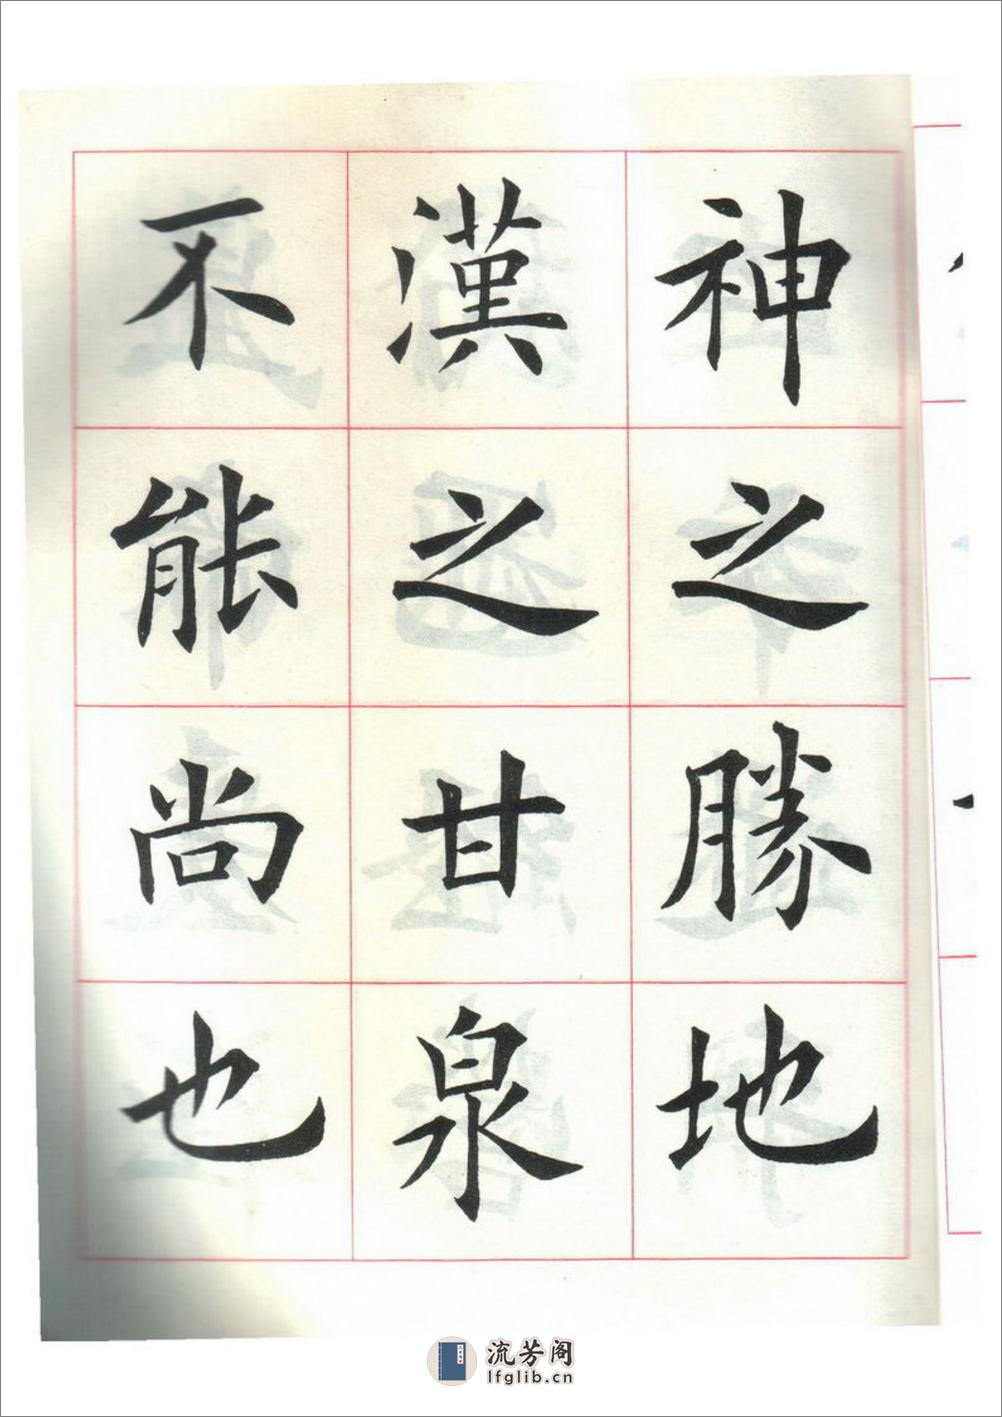 神之勝地
漢之甘泉
不能尚也
流芳阁
lfglib.cn